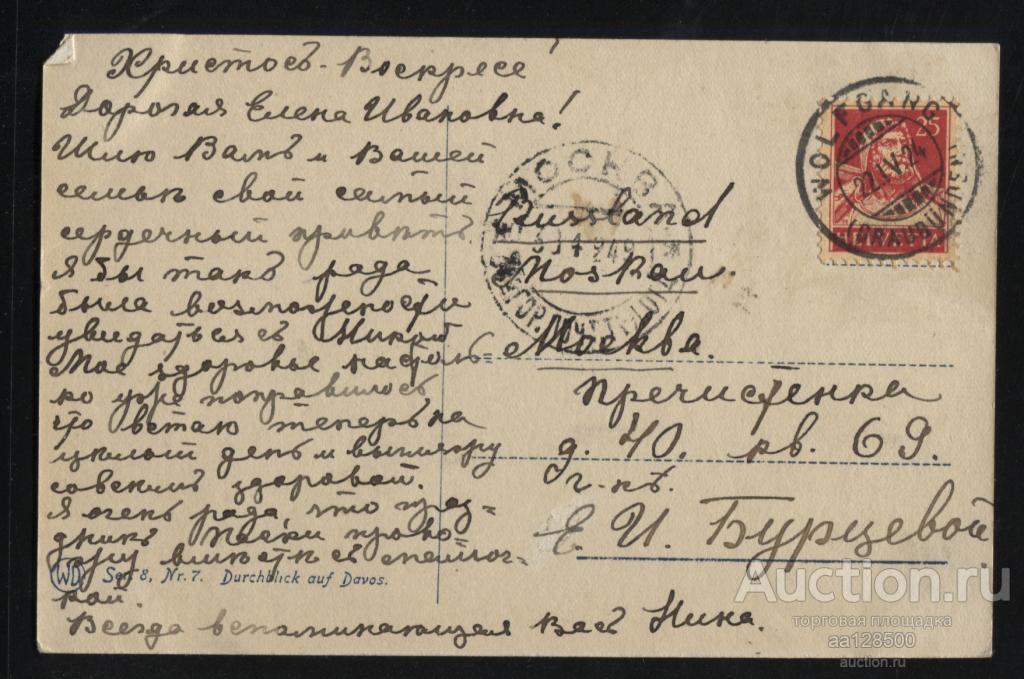 Христосъ-Воскресе!
Дорогая Елена Ивановна!
Шлю Вамъ и Вашей
семьѣ свой самый
сердечный привѣтъ.
Я бы такъ рада
была возможности
увидаться съ Никой
Мое здоровье настоль=
ко уже поправилось,
что встаю теперь на
цѣлый день и выгляжу
совсѣмъ здоровой.
Я очень рада, что празд-
никъ Пасхи прово-
жу вмѣстѣ съ
кой.
Всегда вспоминающая Васъ Ника.
WD Ser. 8, Nr. 7. Durchblick auf Davos.
Russland
Moskau.
Москва.
Пречистенка
д. 40. кв. 69.
г-нѣ.
Е. И. Бурцевой.
WOLFGANG
22.IV.24
(GRAUBÜNDEN)
25
МОСКВА
30 4 24
Auction.ru
торговая площадка
aa128500
auction.ru